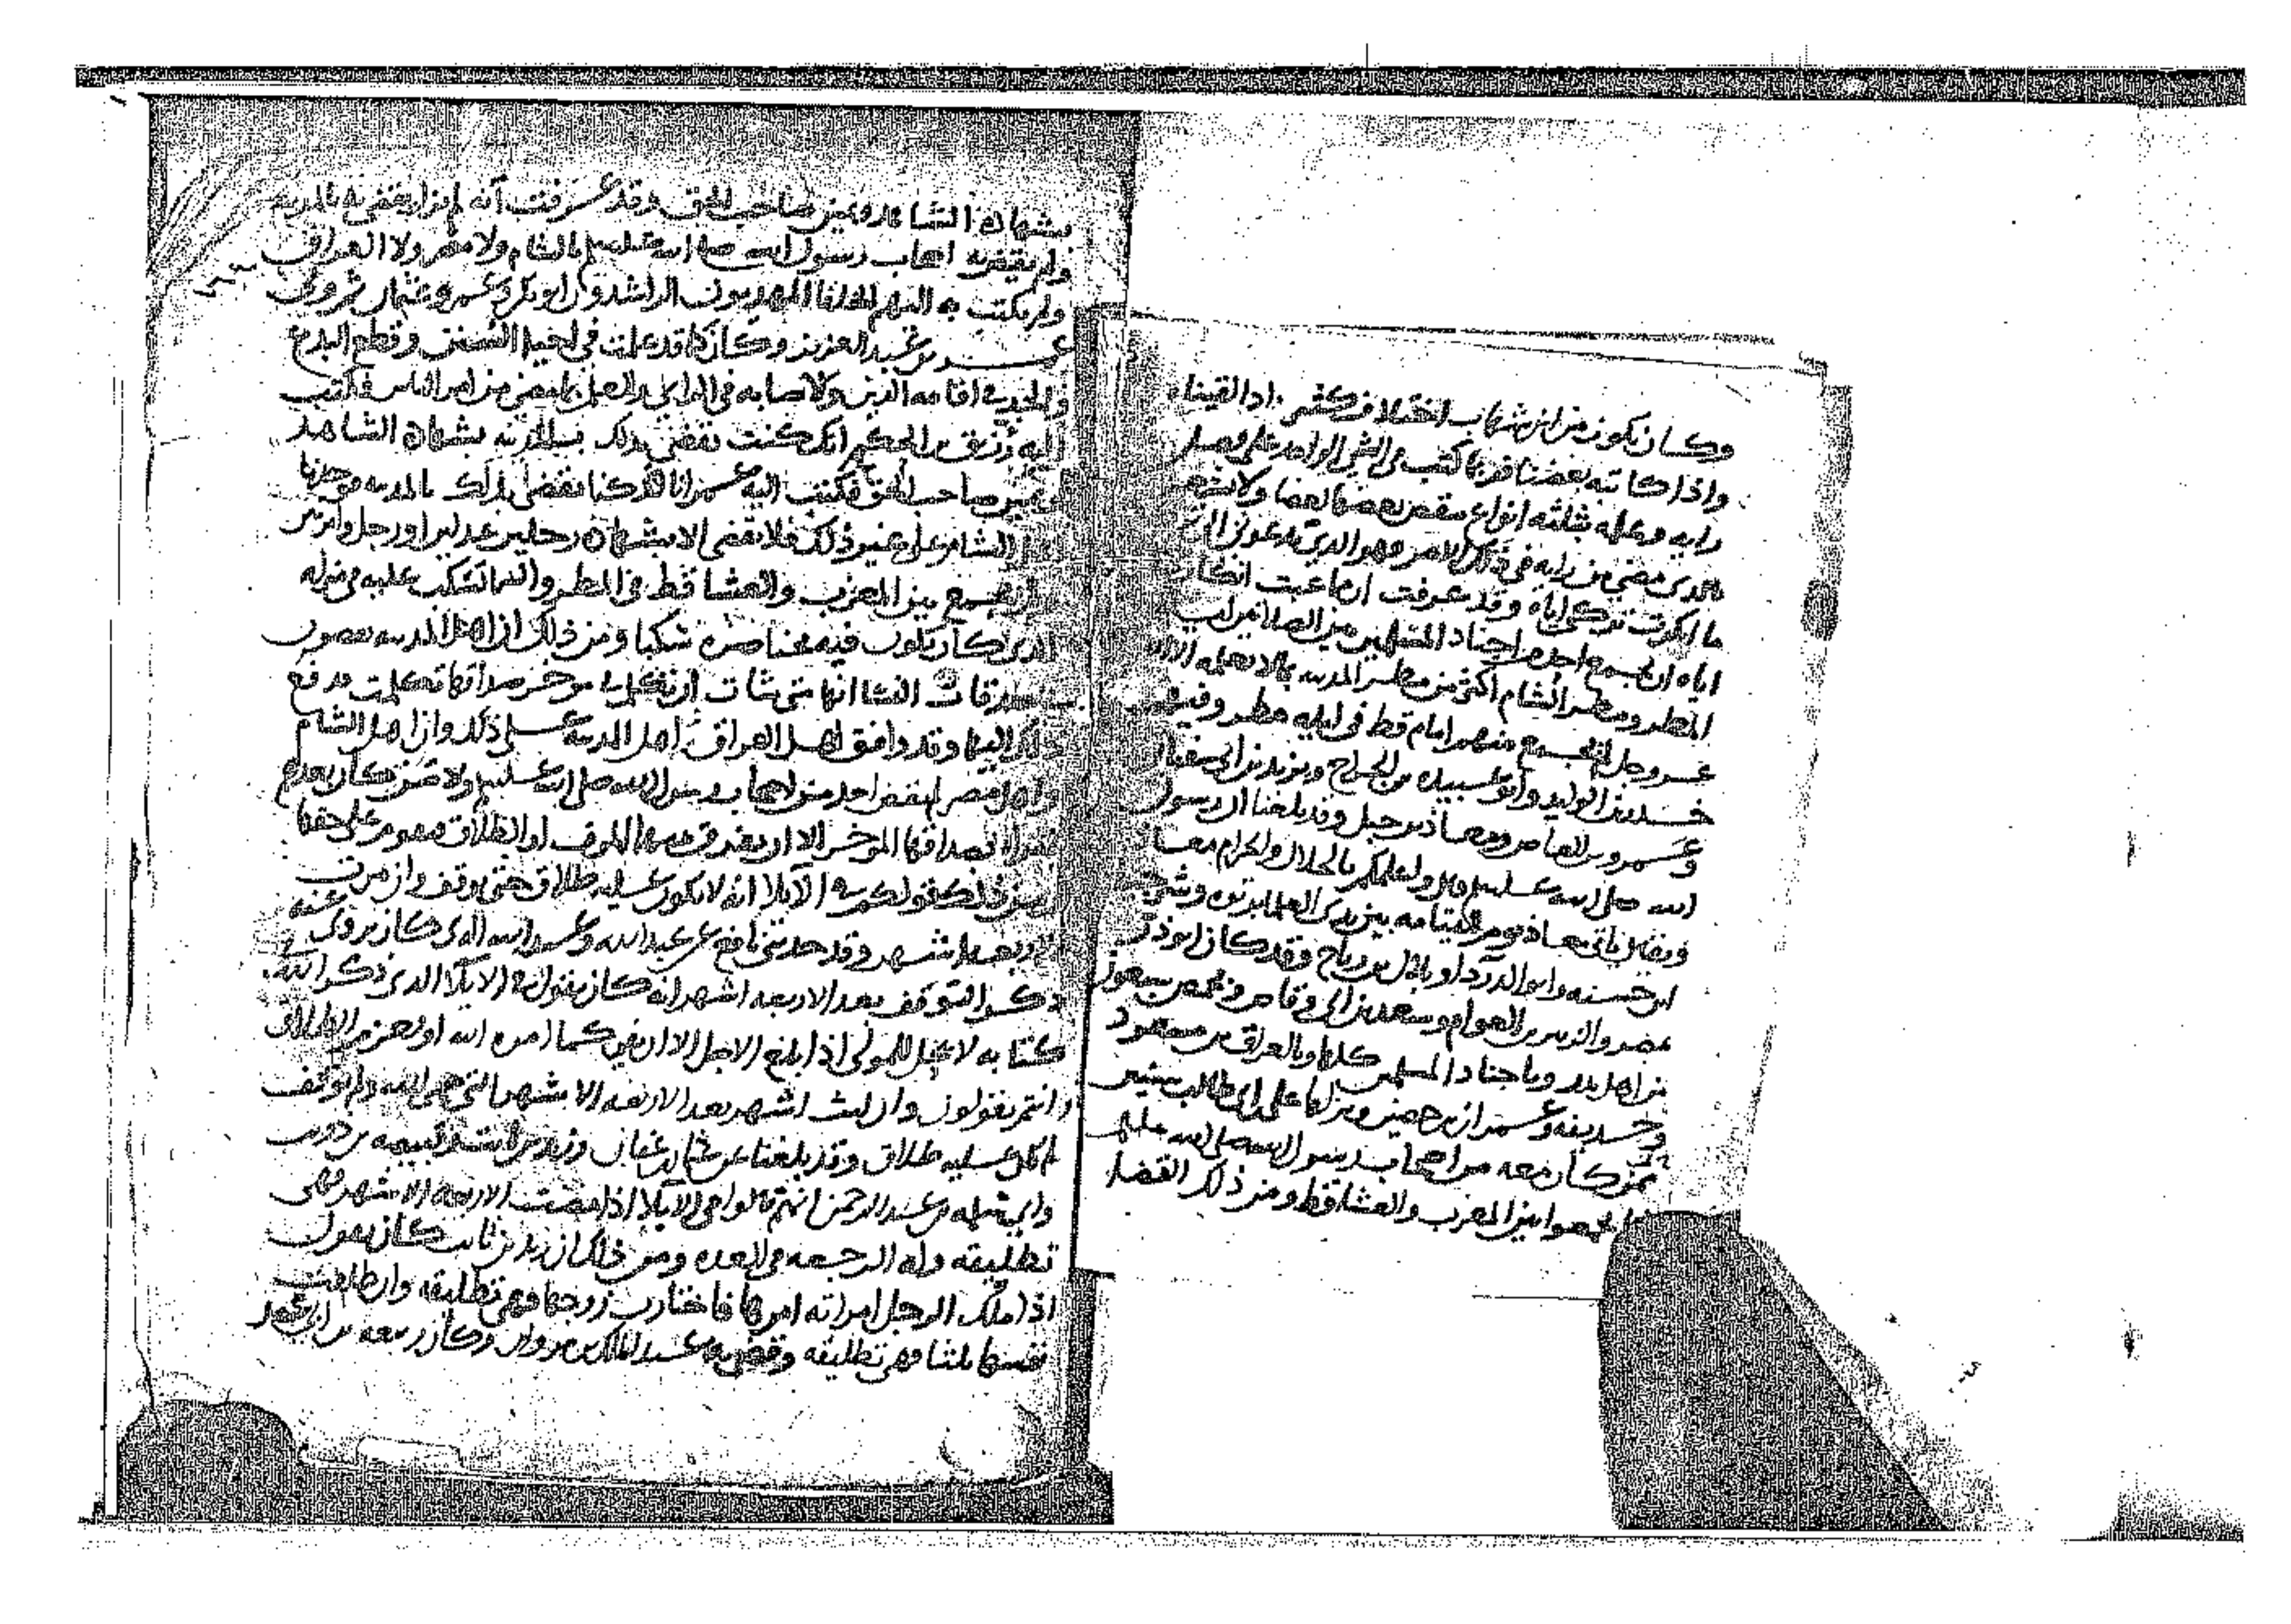 وكان يكون من ابن شهاب اختلاف كثير اذا لقيناه
واذا كاتبه بعضنا فربما كتب في الشي الواحد على فضل
رايه وعلمه بثلثه انواع ينقض بعضها بعضا ولا يشعر
بالذي مضى من رايه في ذلك الامر فهو الذي يدعوني الى
ما انكرت تركي اياه وقد عرفت ان مما عبت انكاري
اياه ان يجمع احد من اجناد المسلمين بين الصلاتين ليلة
المطر ومطر الشام اكثر من مطر المدينه بما لا يعلمه الا الله
عز وجل لم يجمع منهم امام قط في ليله مطر وفيهم
خالد بن الوليد وابو عبيده بن الجراح ويزيد بن ابي سفيان
وعمرو بن العاص ومعاذ بن جبل وقد بلغنا ان رسول
الله صلى الله عليه وسلم قال واعلمكم بالحلال والحرام معاذ
ويقال ياتي معاذ يوم القيامه بين يدي العلما برتوه وشرحبيل
ابن حسنه وابو الدردا وبلال بن رباح وقد كان ابو ذر
بمصر والزبير بن العوام وسعد بن ابي وقاص وبحمص سبعون
من اهل بدر وباجناد المسلمين كلها وبالعراق بن مسعود
وحذيفه وعمران بن حصين ونزلها علي بن ابي طالب سنين
بمن كان معه من اصحاب رسول الله صلى الله عليه
لم يجمعوا بين المغرب والعشا قط ومن ذلك القضا
بشهادة الشاهد ويمين صاحب الحق وقد عرفت انه لم يزل يقضى به بالمدينه
ولم يقض به اصحاب رسول الله صلى الله عليه بالشام ولا مصر ولا العراق
ولم يكتب به اليهم الخلفا المهديون الراشدون ابو بكر وعمر وعثمان ثم ولي
عمر بن عبد العزيز وكان كما قد علمت في احيا السنن وقطع البدع
والجد في اقامه الدين والاصابه في الراي والعلم بما مضى من امر الناس فكتب
اليه رزيق بن الحكيم انك كنت تقضي بذلك بالمدينه بشهادة الشاهد
ويمين صاحب الحق فكتب اليه عمر انا قد كنا نقضي بذلك بالمدينه فوجدنا
اهل الشام على غير ذلك فلا نقضي الا بشهادة رجلين عدلين او رجل وامرتين
ولم يجمع بين المغرب والعشا قط في المطر والسما تسكب عليه في منزله
الذي كان يكون فيه بخناصره سكبا ومن ذلك ان اهل المدينه يقضون
في صدقات النسا انها متى شات ان تكلم في موخر صداقها تكلمت فدفع
ذلك اليها وقد وافق اهل العراق اهل المدينه على ذلك وان اهل الشام
واهل مصر لم يقض احد من اصحاب رسول الله صلى الله عليه ولا من كان بعدهم
لامراه بصداقها الموخر الا ان يفرق بينهما الموت او الطلاق فتقوم على حقها
ومن ذلك قولكم في الايلا انه لا يكون عليه طلاق حتى يوقف وان مرت
الاربعه اشهر وقد حدثني نافع عن عبد الله وعبد الله الذي كان يروى عنه
ذكر التوقف بعد الاربعه اشهر انه كان يقول في الايلا الذي ذكر الله
كتابه لا يحل للمولي اذا بلغ الاجل الا ان يفي كما امره الله او يعزم الطلاق
وانتم تقولون وان لبث اشهر بعد الاربعه الاشهر التي سمى الله ولم يوقف
لم يكن عليه طلاق وقد بلغنا عن عثمان بن عفان وزيد بن ثابت وقبيصه بن ذويب
وابي سلمه بن عبد الرحمن انهم قالوا في الايلا اذا مضت الاربعه الاشهر فهي
تطليقه وله الرجعه في العده ومن ذلك ان زيد بن ثابت كان يقول
اذا ملك الرجل امراته امرها فاختارت زوجها فهي تطليقه وان طلقت
نفسها ثلثا فهي تطليقه وقضى به عبد الملك بن مروان وكان ربيعه بن ابي عبد